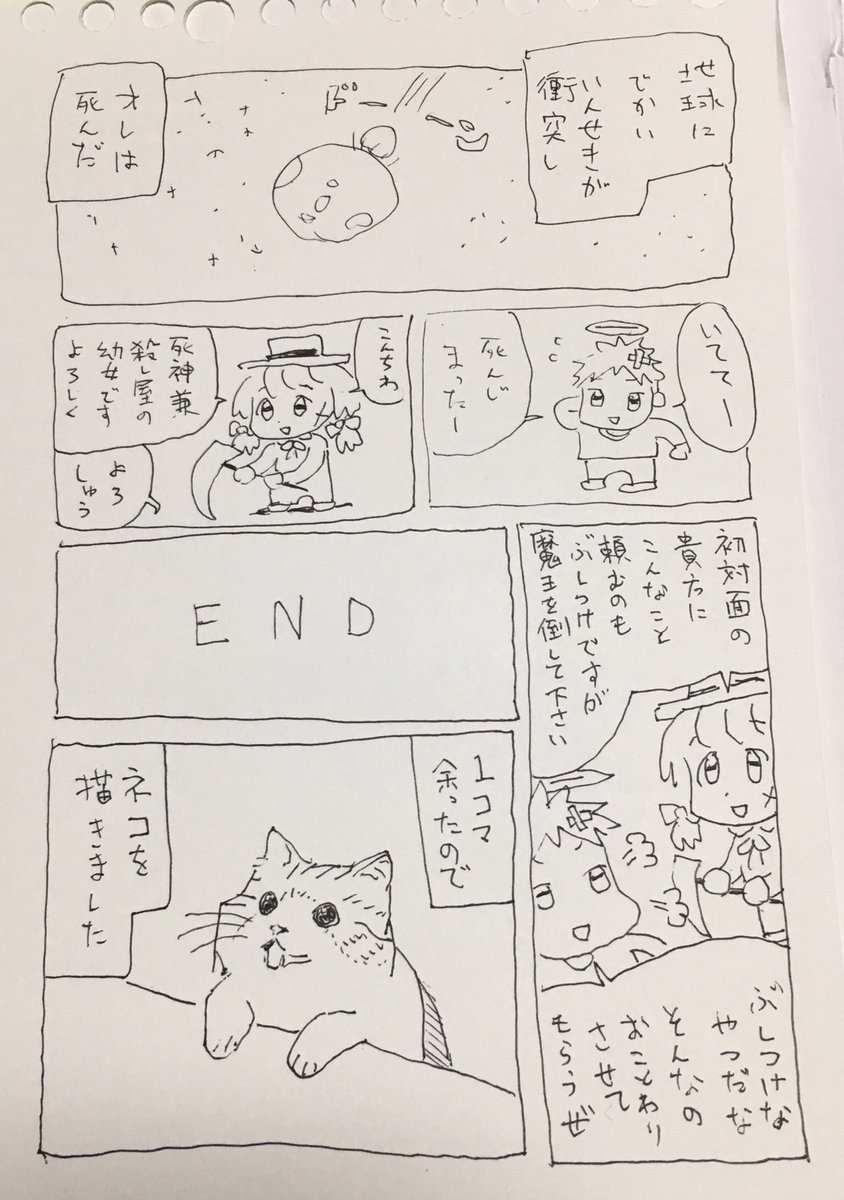 地球に
でかい
いんせきが
衝突し
ドーン
オレは
死んだ
いててー
死んじ
まったー
こんちわ
死神兼
殺し屋の
幼女です
よろしく
よろ
しゅう
初対面の
貴方に
こんなこと
頼むのも
ぶしつけですが
魔王を倒して下さい
ぶしつけな
やつだな
そんなの
おことわり
させて
もらうぜ
END
1コマ
余ったので
ネコを
描きました